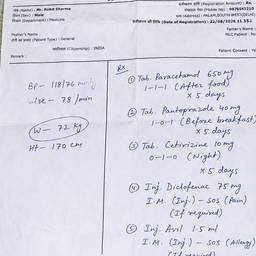 नाम (Name) : Mr. Rohit Sharma
लिंग (Sex) : Male
विभाग (Department) : Medicine
(Registration Amount) : Rs.
(Mobile No) : 9876543210
पता (Address) : PALAM,SOUTH WEST(DELHI)
(Date of Registration) : 22/08/2025 11:35
Father's Name :
(Patient Type) : General
(Citizenship) : INDIA
Remark
Father's Name
MLC Patient : No
Patient Consent : Ye
BP - 118/76
Pulse - 78 /min
W - 72 kg
Ht - 170 cm
Rx
① Tab. Paracetamol 650 mg
1-1-1 (After food)
x 5 days
② Tab. Pantoprazole 40 mg
1-0-1 (Before breakfast)
x 5 days
③ Tab. Cetirizine 10 mg
0-1-0 (Night)
x 5 days
④ Inj. Diclofenac 75 mg
I.M. (Inj.) - SOS (Pain)
(If required)
⑤ Inj. Avil 1.5 ml
I.M. (Inj.) - SOS (Allergy)
(If required)